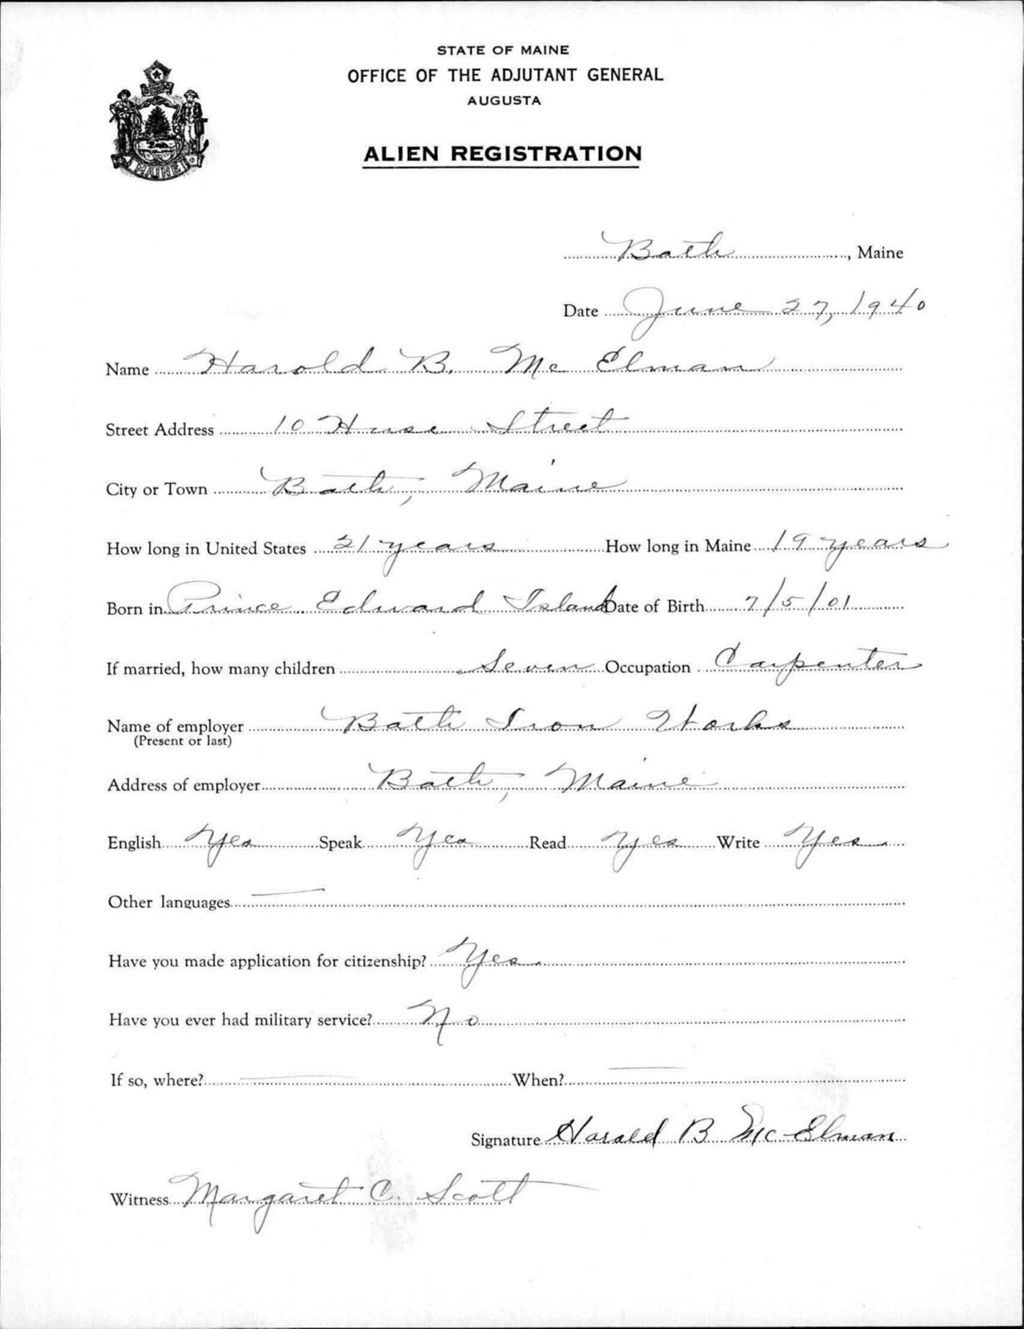 STATE OF MAINE
OFFICE OF THE ADJUTANT GENERAL
AUGUSTA
ALIEN REGISTRATION
MAINE
Bath, Maine
Date June 27, 1940
Name Harold B. Mc Elman
Street Address 10 Huse Street
City or Town Bath, Maine
How long in United States 21 years How long in Maine 19 years
Born in Prince Edward Island Date of Birth 7/5/01
If married, how many children Seven Occupation Carpenter
Name of employer Bath Iron Works
(Present or last)
Address of employer Bath, Maine
English Yes Speak Yes Read Yes Write Yes
Other languages —
Have you made application for citizenship? Yes
Have you ever had military service? No
If so, where? — When? —
Signature Harold B Mc Elman
Witness Margaret C. Scott